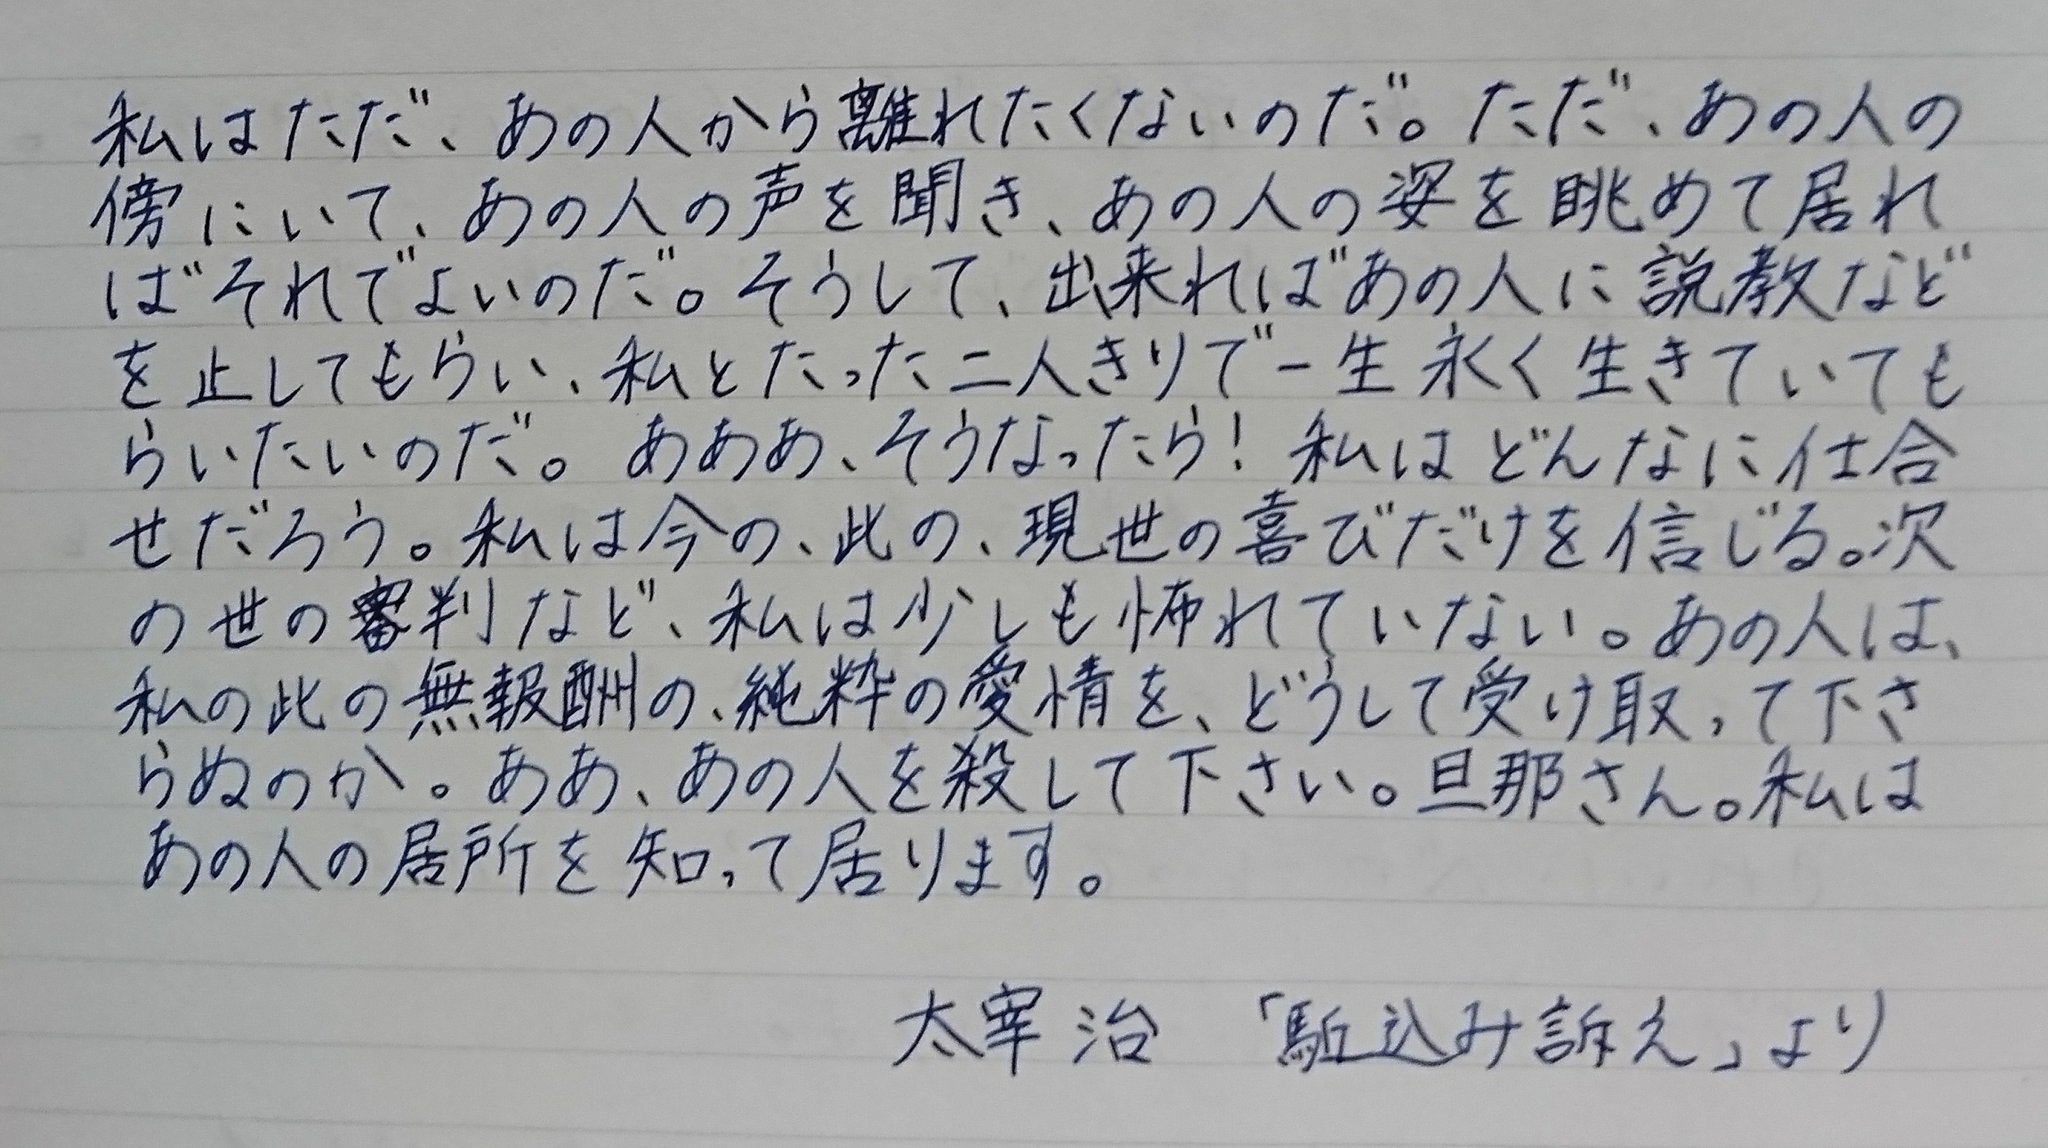 私はただ、あの人から離れたくないのだ。ただ、あの人の
傍にいて、あの人の声を聞き、あの人の姿を眺めて居れ
ばそれでよいのだ。そうして、出来ればあの人に説教など
を止してもらい、私とたった二人きりで一生永く生きていても
らいたいのだ。あああ、そうなったら！私はどんなに仕合
せだろう。私は今の、此の、現世の喜びだけを信じる。次
の世の審判など、私は少しも怖れていない。あの人は、
私の此の無報酬の、純粋の愛情を、どうして受け取って下さ
らぬのか。ああ、あの人を殺して下さい。旦那さん。私は
あの人の居所を知って居ります。
太宰治 「駈込み訴え」より